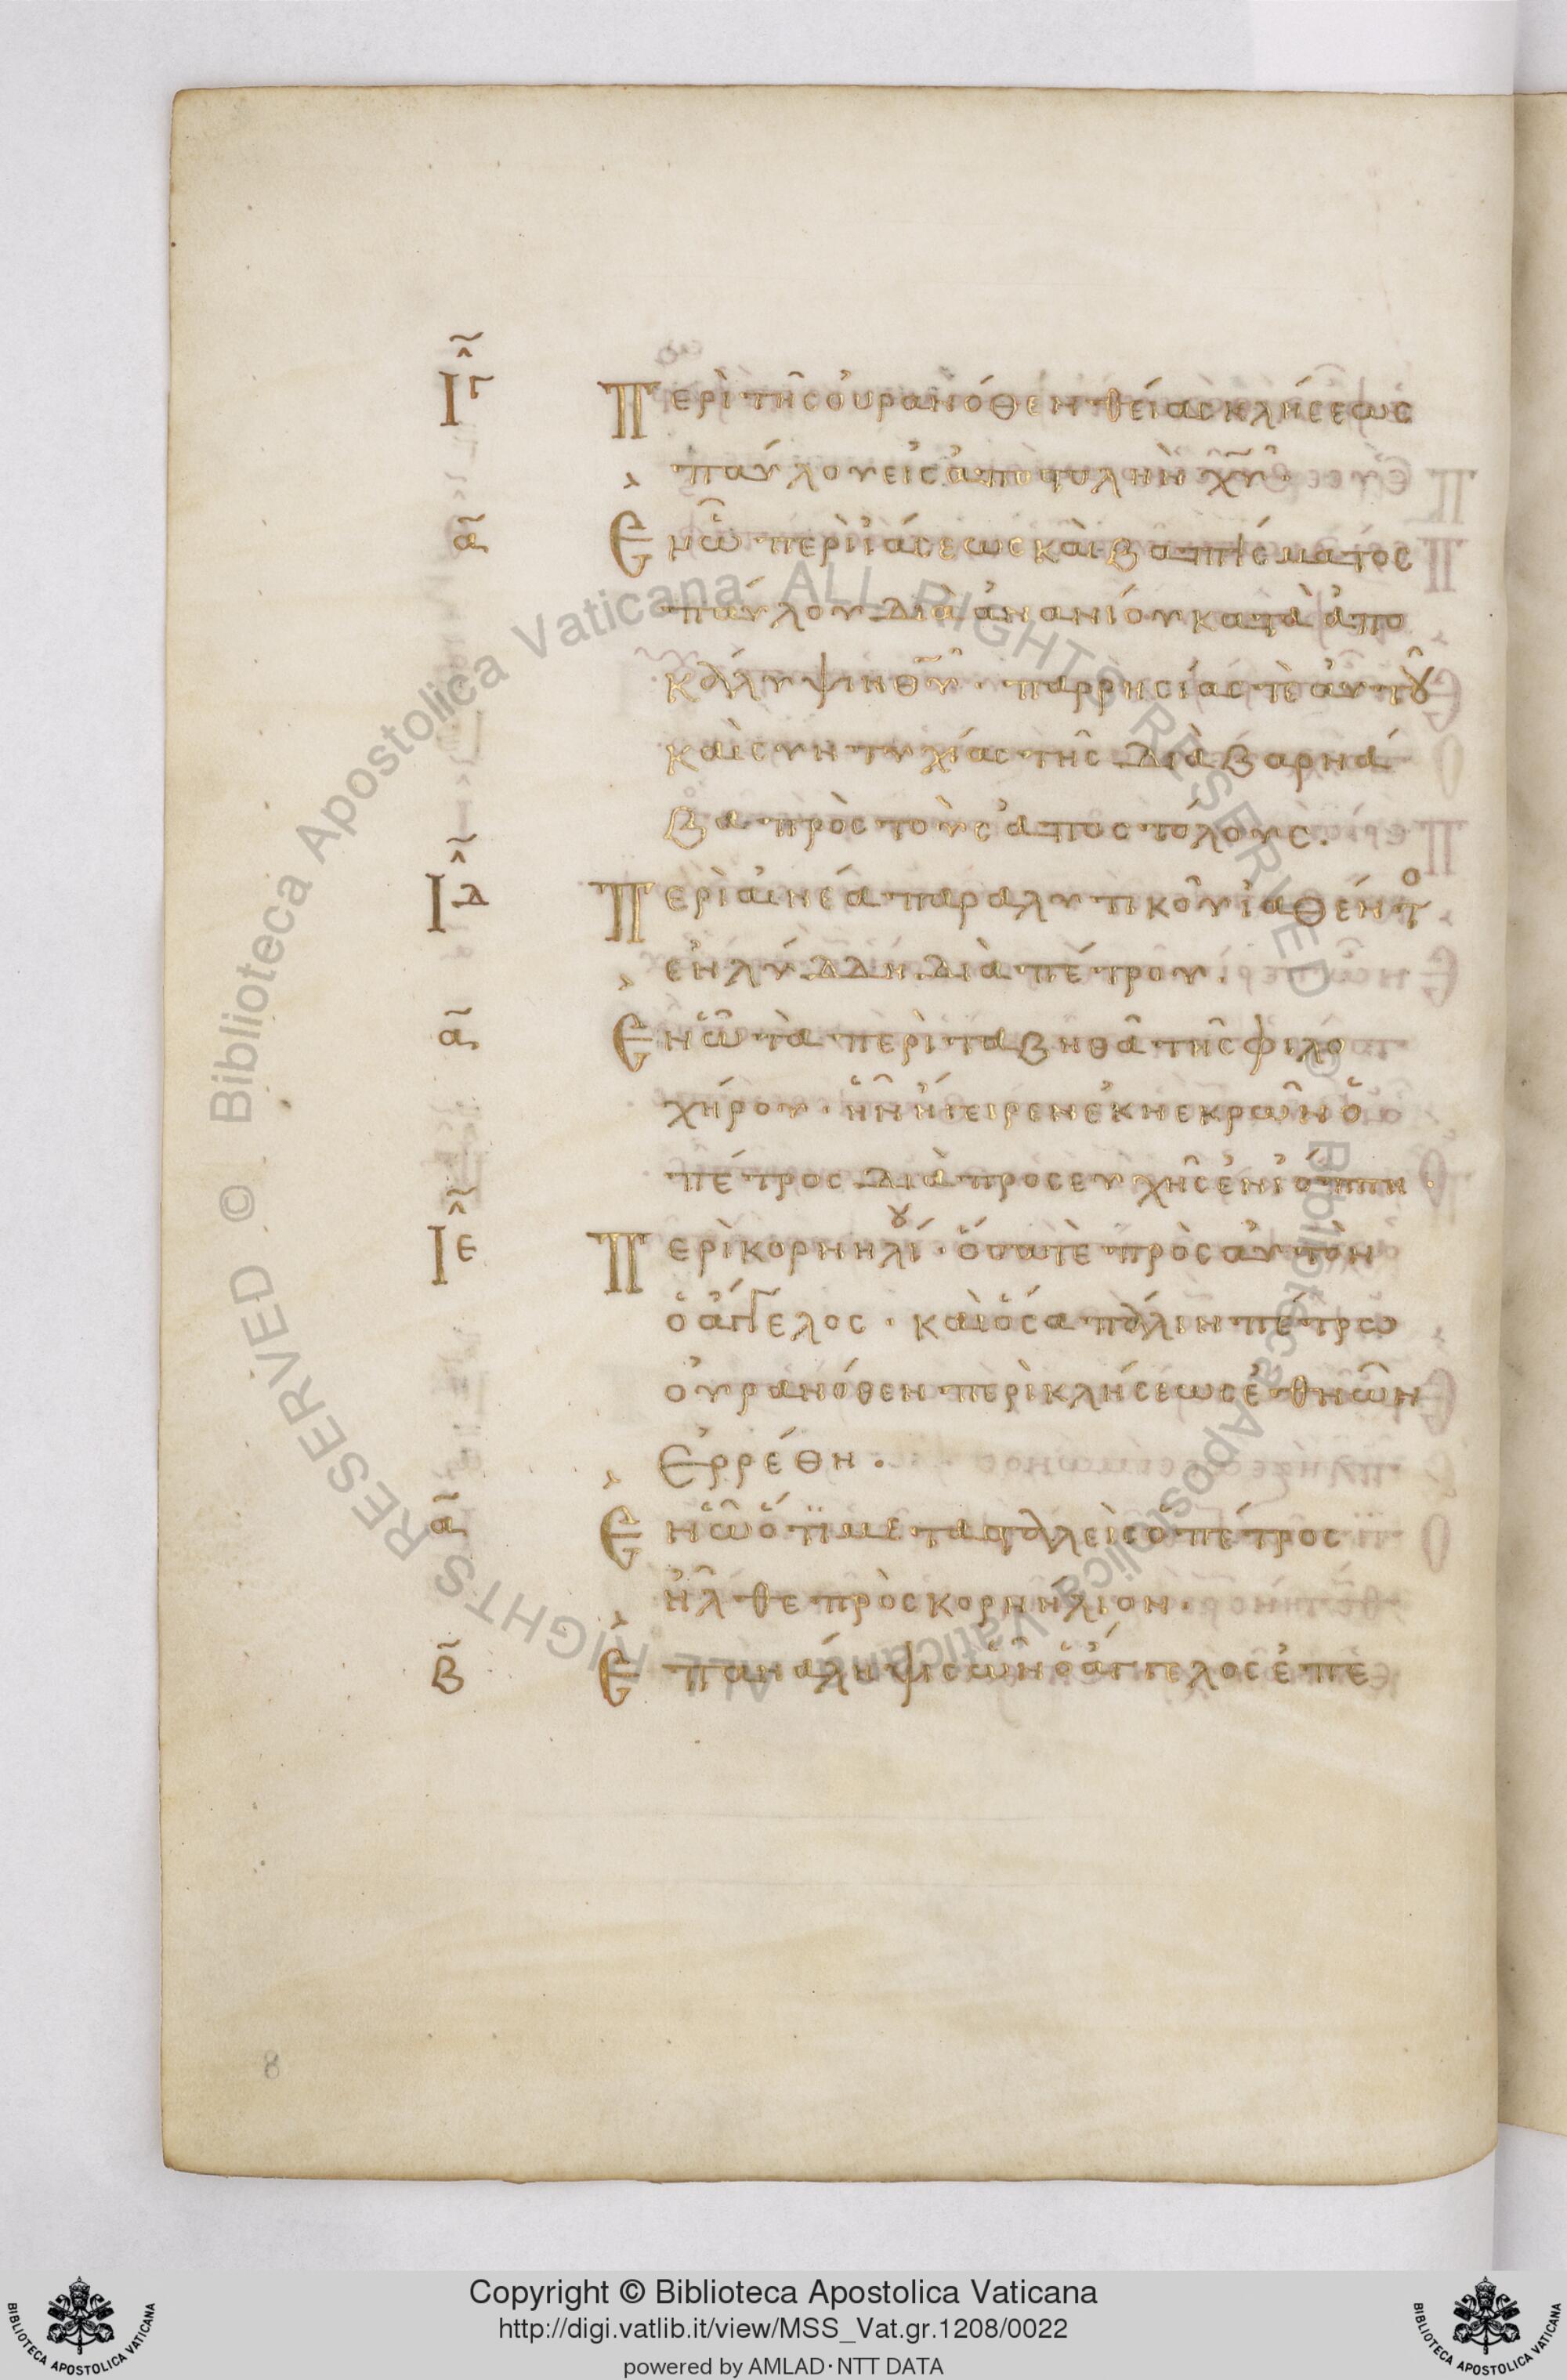 ΙΓ Περὶ τῆς οὐρανόθεν θείας κλήσεως
παύλου εἰς ἀποστολὴν χυ·
α Ἐν ὧ περὶ ἰάσεως καὶ βαπτίσματος
παύλου διὰ ἀνανίου κατὰ ἀπο
κάλυψιν θυ· παρρησίας τὲ αὐτοῦ
καὶ συντυχίας τῆς διὰ βαρνά
βα πρὸς τοὺς ἀποστόλους.
ΙΔ Περὶ αἰνέα παραλυτικοῦ ἰαθέντο
ἐν λύδδη διὰ πέτρου.
α Ἐν ὧ τὰ περὶ ταβηθᾶ τῆς φιλο
χήρου· ἣν ἤγειρεν ἐκ νεκρῶν ὁ
πέτρος διὰ προσευχῆς ἐν ἰόππη·
ΙΕ Περὶ κορνηλίου· ὅσα τὲ πρὸς αὐτὸν
ὁ ἄγγελος· καὶ ὅσα πάλιν πέτρω
οὐρανόθεν περὶ κλήσεως ἐθνῶν
Ἐρρέθη·
α Ἐν ὧ ὅτι μετασταλεὶς ὁ πέτρος
ἦλθε πρὸς κορνήλιον·
β Ἐπανάληψις ὧν ὁ ἄγγελος ἐπέ
8
© Biblioteca Apostolica Vaticana ALL RIGHTS RESERVED
© Biblioteca Apostolica Vaticana ALL RIGHTS RESERVED
Copyright © Biblioteca Apostolica Vaticana
http://digi.vatlib.it/view/MSS_Vat.gr.1208/0022
powered by AMLAD·NTT DATA
BIBLIOTECA APOSTOLICA VATICANA
BIBLIOTECA APOSTOLICA VATICANA